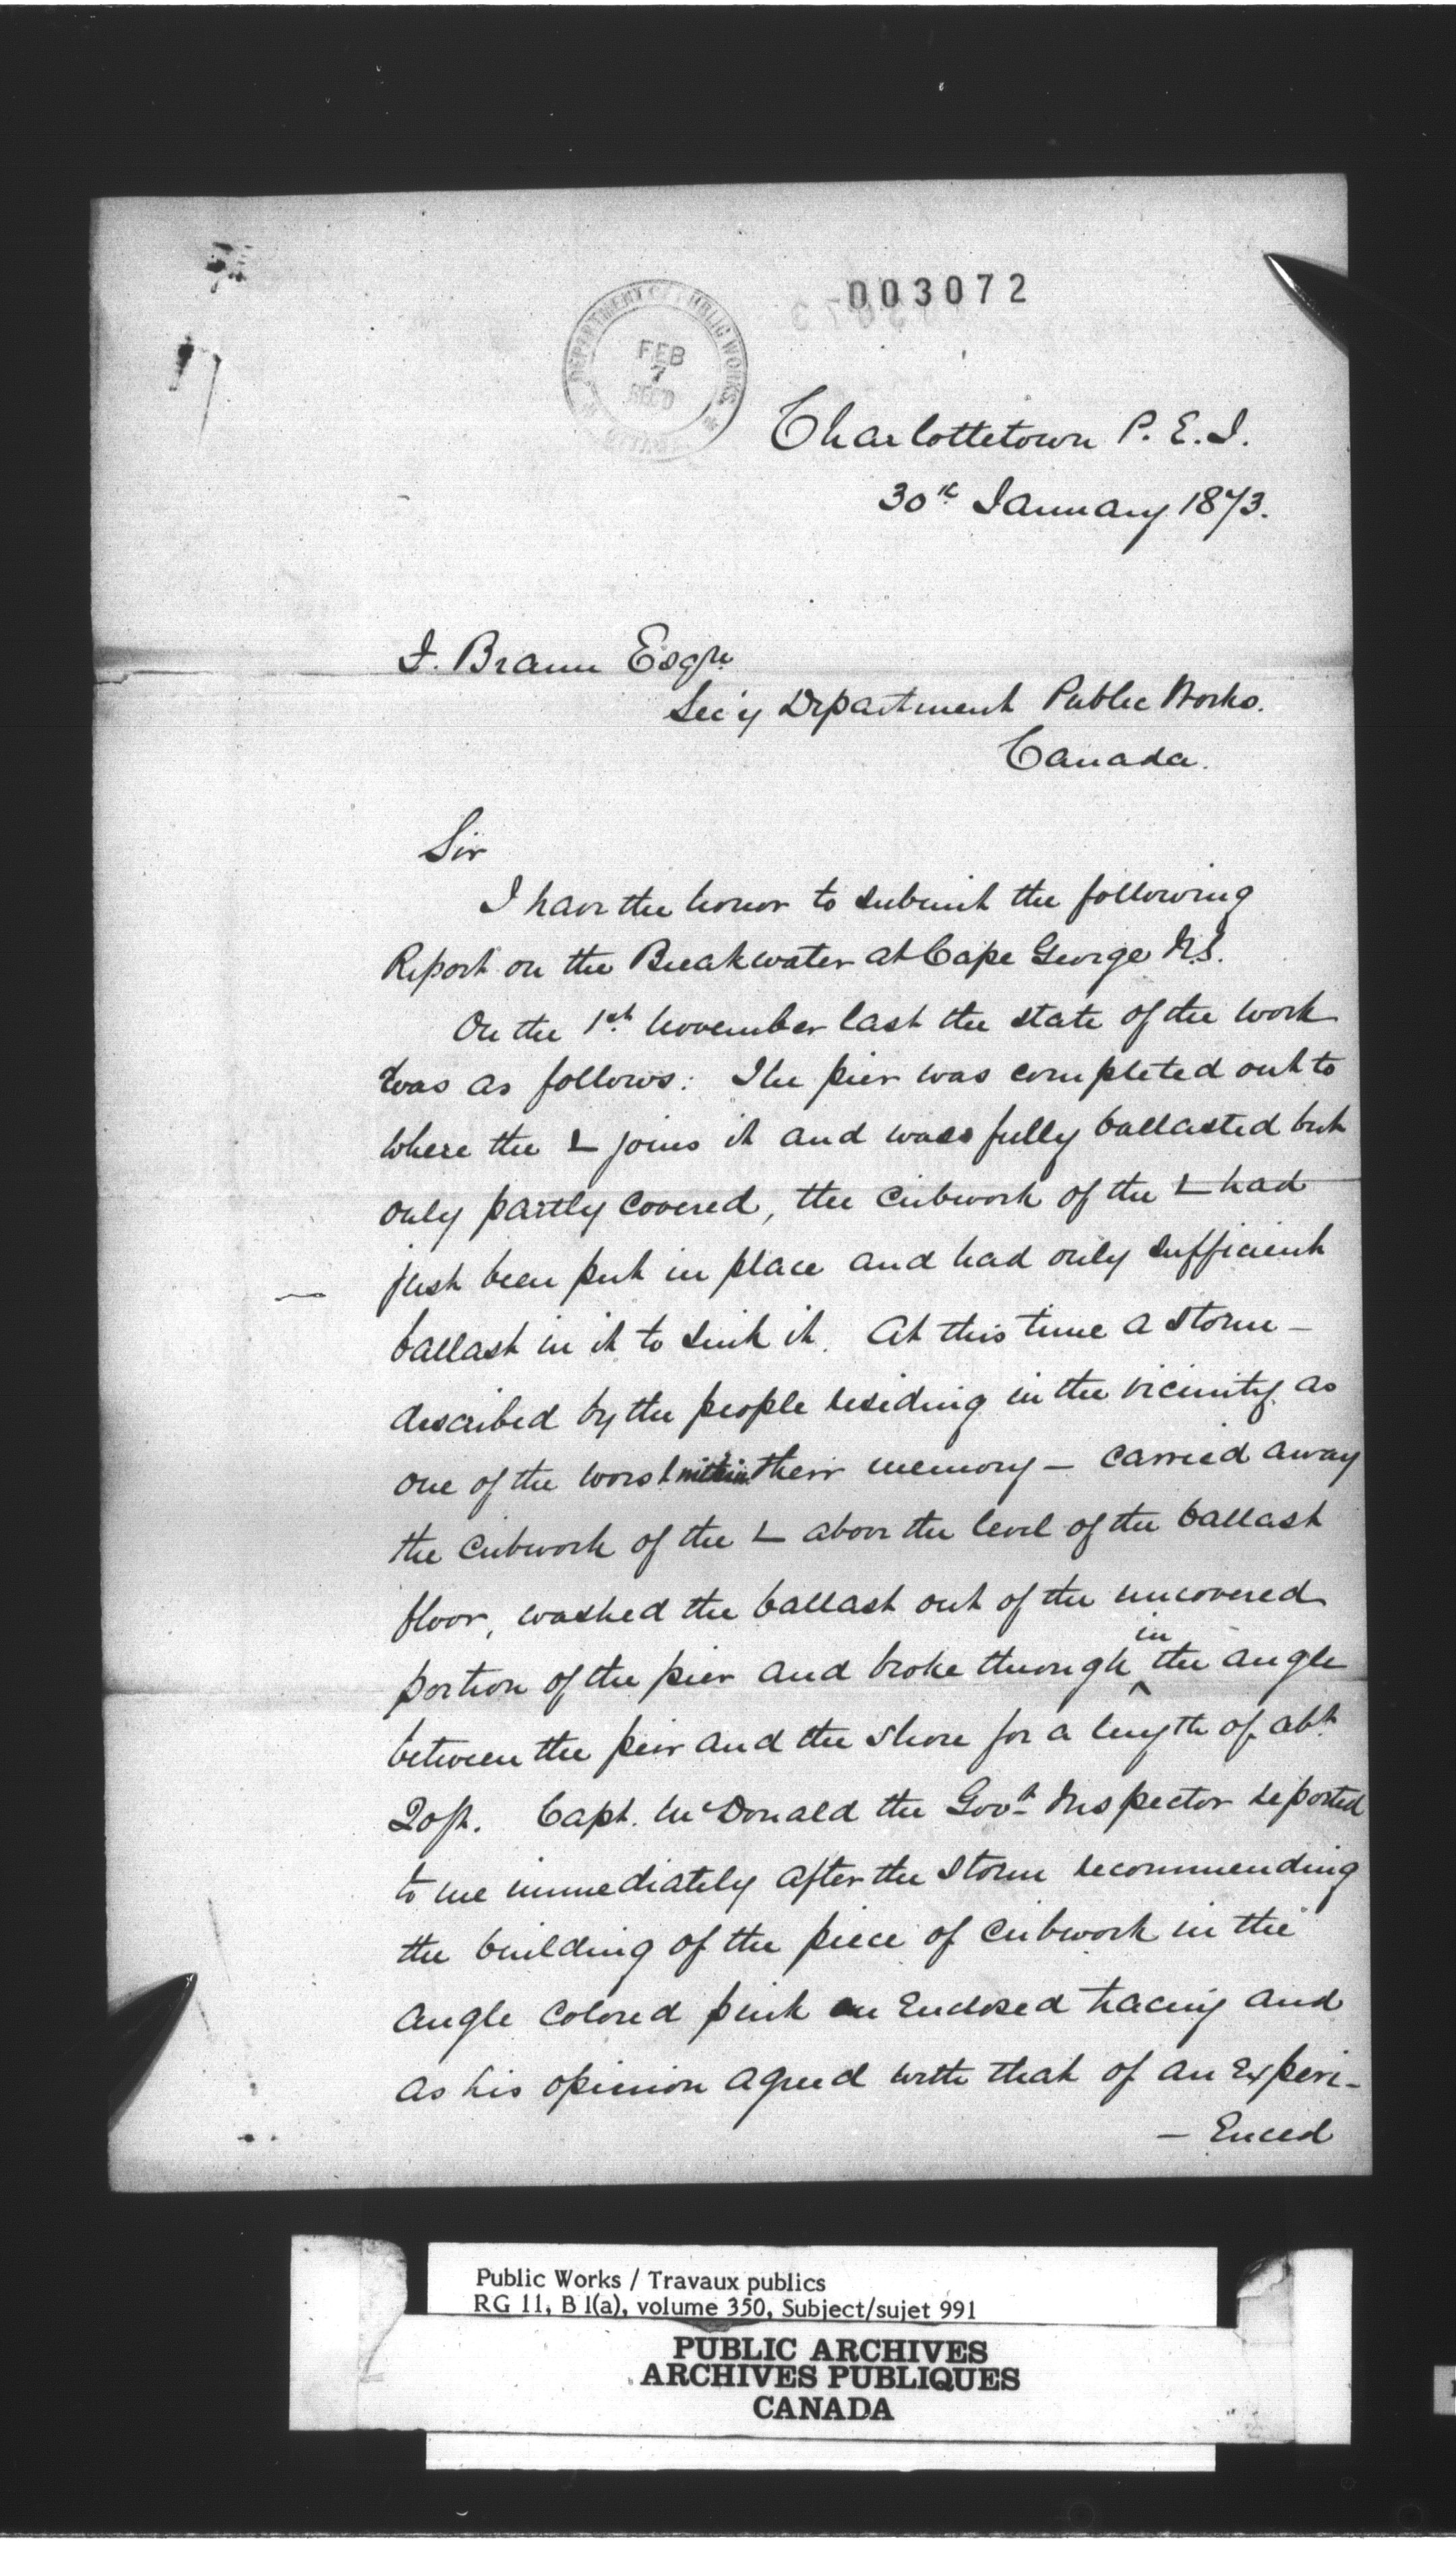 003072
DEPARTMENT OF PUBLIC WORKS
FEB
7
REC'D
OTTAWA
Charlottetown P. E. I.
30th January 1873.
F. Braun Esqre
Sec'y Department Public Works.
Canada.
Sir
I have the honor to submit the following
Report on the Breakwater at Cape George N.S.
On the 1st November last the state of the work
was as follows: The pier was completed out to
where the L joins it and was fully ballasted but
only partly covered, the cribwork of the L had
just been put in place and had only sufficient
ballast in it to sink it. At this time a storm –
described by the people residing in the vicinity as
one of the worst within their memory – carried away
the cribwork of the L above the level of the ballast
floor, washed the ballast out of the uncovered
portion of the pier and broke through in the angle
between the pier and the shore for a length of abt
20ft. Capt. McDonald the Govt Inspector reported
to me immediately after the storm recommending
the building of the piece of cribwork in the
angle colored pink on enclosed tracing and
as his opinion agreed with that of an experi-
– enced
Public Works / Travaux publics
RG 11, B 1(a), volume 350, Subject/sujet 991
PUBLIC ARCHIVES
ARCHIVES PUBLIQUES
CANADA